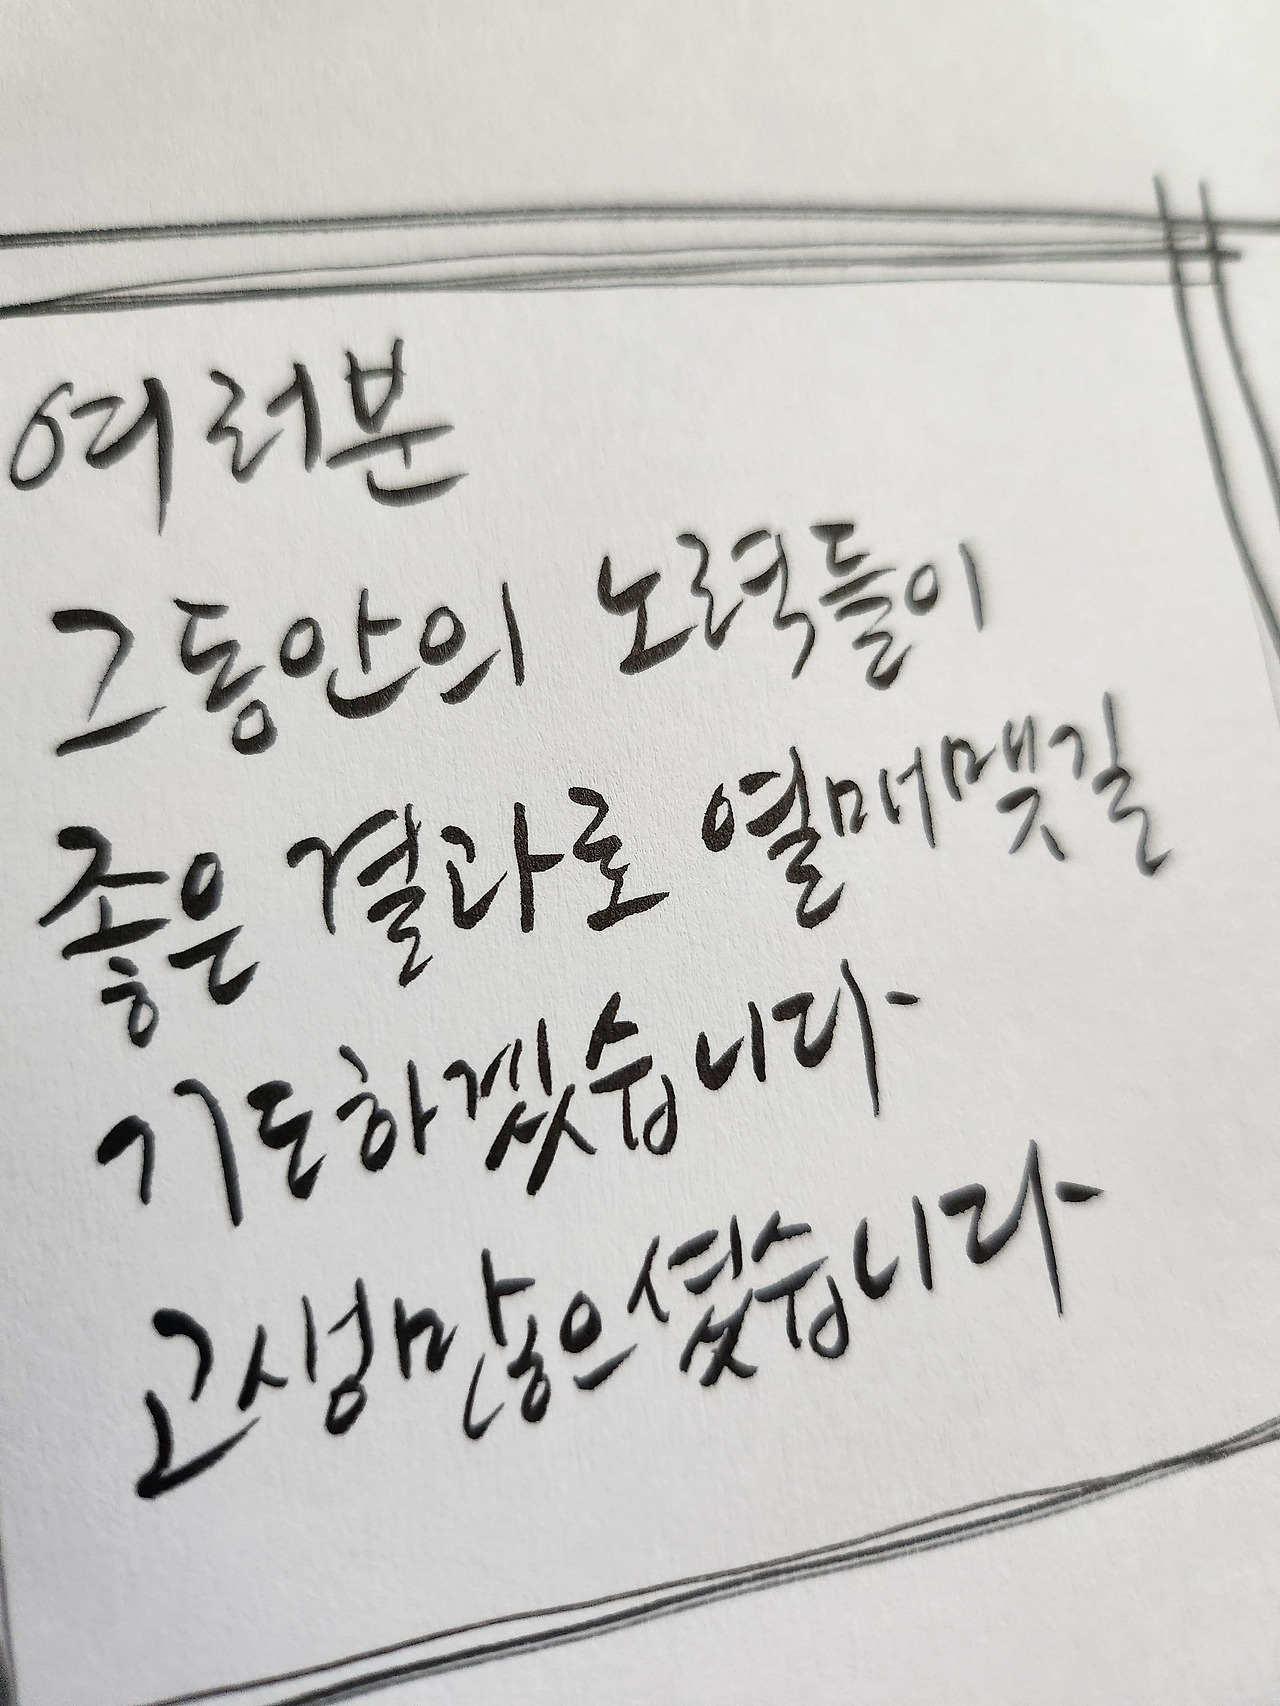 여러분
그동안의 노력들이
좋은 결과로 열매맺길
기도하겠습니다
고생많으셨습니다